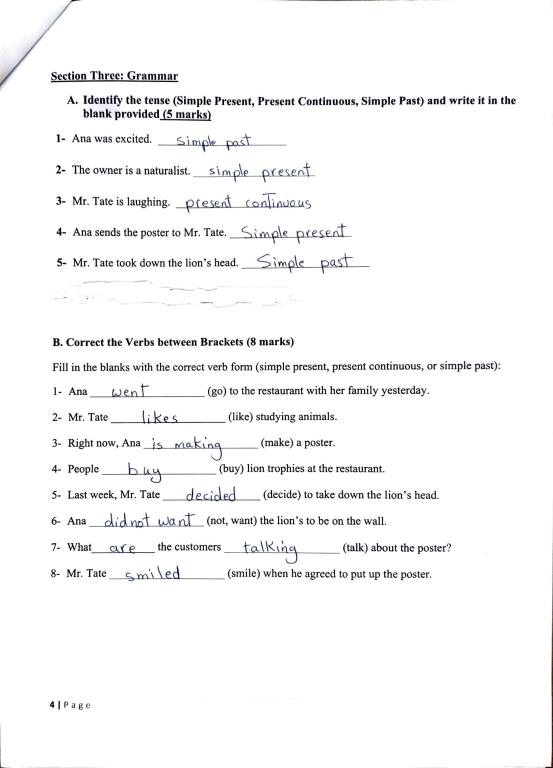 Section Three: Grammar
A. Identify the tense (Simple Present, Present Continuous, Simple Past) and write it in the
blank provided (5 marks)
1- Ana was excited. Simple past
2- The owner is a naturalist. simple present
3- Mr. Tate is laughing. present continuous
4- Ana sends the poster to Mr. Tate. Simple present
5- Mr. Tate took down the lion's head. Simple past
B. Correct the Verbs between Brackets (8 marks)
Fill in the blanks with the correct verb form (simple present, present continuous, or simple past):
1- Ana went (go) to the restaurant with her family yesterday.
2- Mr. Tate likes (like) studying animals.
3- Right now, Ana is making (make) a poster.
4- People buy (buy) lion trophies at the restaurant.
5- Last week, Mr. Tate decided (decide) to take down the lion's head.
6- Ana did not want (not, want) the lion's to be on the wall.
7- What are the customers talking (talk) about the poster?
8- Mr. Tate smiled (smile) when he agreed to put up the poster.
4 | Page